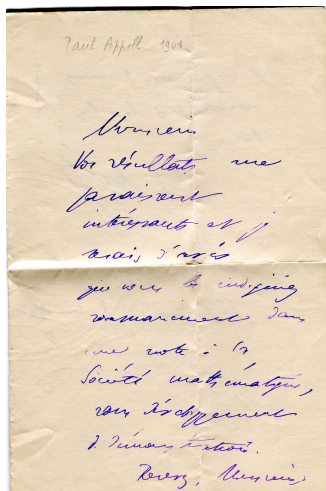 Paul Appell 1901
Monsieur
Vos résultats me
paraissent
intéressants et je
serais d'avis
que vous les indiquiez
sommairement dans
une note à la
Société mathématique,
sans développement
ni démonstration.
Recevez, Monsieur,